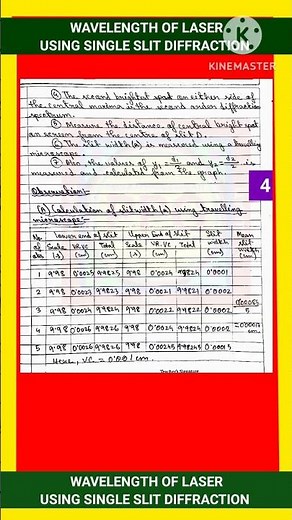 WAVELENGTH OF LASER
USING SINGLE SLIT DIFFRACTION
KINEMASTER
④ The second brightest spot on either side of
the central maxima is the second order diffraction
spectrum.
⑤ Measure the distance of central bright spot
on screen from the centre of slit D.
⑥ The slit width (a) is measured using a travelling
microscope.
⑦ Also the values of y₁ = d₁/2 and y₂ = d₂/2 is
measured and calculated from the graph.
Observation:-
4
(A) Calculation of slit width (a) using travelling
microscope:-
No. of obs Lower end of slit Upper end of slit Slit width (cm) Mean slit width (cm)
Scale (x) VR.VC (cm) Total (cm) Scale (x) VR.VC (cm) Total (cm)
1 9.98 0.0025 9.9825 9.98 0.0024 9.9824 0.0001
2 9.98 0.0023 9.9823 9.98 0.0021 9.9821 0.0002
3 9.98 0.0024 9.9824 9.98 0.0022 9.9822 0.0002
4 9.98 0.0026 9.9826 9.98 0.0024 9.9824 0.0002
5 9.98 0.0026 9.9826 9.98 0.00245 9.98245 0.00015
Here, VC = 0.001 cm.
Teacher's Signature
WAVELENGTH OF LASER
USING SINGLE SLIT DIFFRACTION